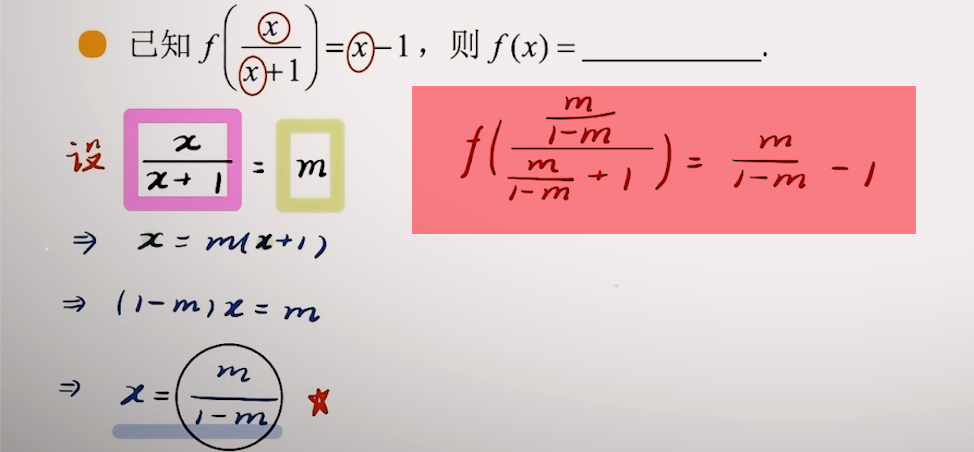 已知 f(x/(x+1)) = x-1，则 f(x) = ________.
设 x/(x+1) = m
⇒ x = m(x+1)
⇒ (1-m)x = m
⇒ x = m/(1-m)
f((m/(1-m))/(m/(1-m) + 1)) = m/(1-m) - 1